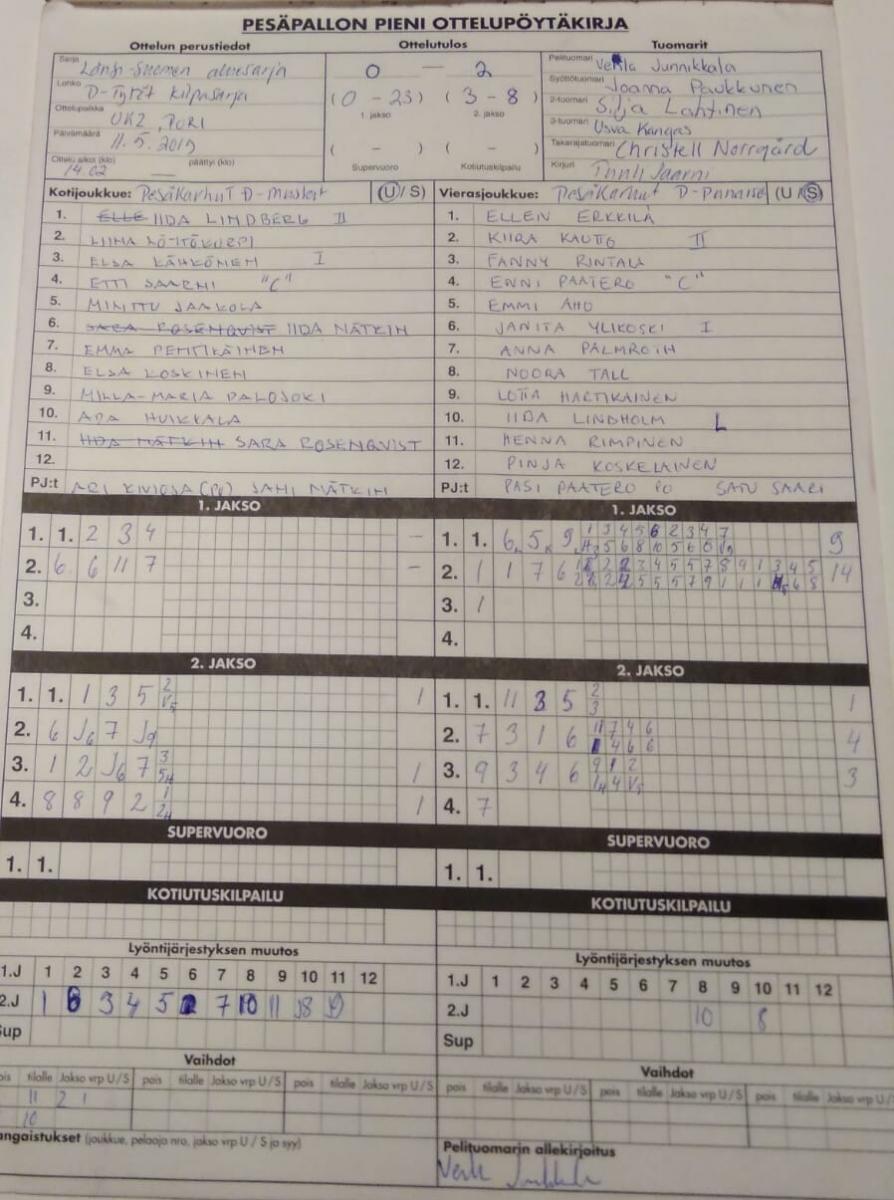 PESÄPALLON PIENI OTTELUPÖYTÄKIRJA
Ottelun perustiedot Ottelutulos Tuomarit
Sarja Länsi-Suomen aluesarja
Lohko D-Tytöt kilpasarja
Ottelupaikka UK2, PORI
Päivämäärä 11.5.2019
Ottelu alkoi (klo) 14.02 päättyi (klo)
0 — 2
(0 - 23) (3 - 8)
1. jakso 2. jakso
( - ) ( - )
Supervuoro Kotiutuskilpailu
Pelituomari Junnikkala
Syöttötuomari Joanna Paukkunen
2-tuomari Silja Lahtinen
3-tuomari Usva Kangas
Takarajatuomari Christell Norrgård
Kirjuri Jaarni
Kotijoukkue: Pesäkarhut D-Mustat (U/S)
1. ELLE IIDA LINDBERG II
2. LIINA
3. ELSA KÄHKÖNEN I
4. ETTI SAARNI "C"
5. MINTTU JAAKOLA
6. SARA ROSENQVIST IIDA NÄTKIN
7. EMMA PENTTIKÄINEN
8. ELSA KOSKINEN
9. MILLA-MARIA PALOJOKI
10. ADA HUIKKALA
11. IIDA NÄTKIN SARA ROSENQVIST
12.
PJ:t ARI KIVIOJA (PJ) SAMI NÄTKIN
Vierasjoukkue: Pesäkarhut D-Punaiset (U/S)
1. ELLEN ERKKILÄ
2. KIIRA KAUTTO II
3. FANNY RINTALA
4. ENNI PAATERO "C"
5. EMMI AHO
6. JANITA YLIKOSKI I
7. ANNA PALMROTH
8. NOORA TALL
9. LOTTA HARTIKAINEN
10. IIDA LINDHOLM L
11. HENNA RIMPINEN
12. PINJA KOSKELAINEN
PJ:t PASI PAATERO PJ SATU SAARI
1. JAKSO
1. 1. 2 3 4 -
2. 6 6 11 7 -
3.
4.
2. JAKSO
1. 1. 1 3 5 2 1
2. 6 J6 7 J9
3. 1 2 J6 7 3 1
4. 8 8 9 2 1 1
SUPERVUORO
1. 1.
KOTIUTUSKILPAILU
Lyöntijärjestyksen muutos
1.J 1 2 3 4 5 6 7 8 9 10 11 12
2.J 1 6 3 4 5 2 7 10 11 8 9
Sup
Vaihdot
pois tilalle Jakso vrp U/S pois tilalle Jakso vrp U/S pois tilalle Jakso vrp U/S
11 2 1
10
angaistukset (joukkue, pelaaja nro, jakso vrp U / S ja syy)
1. JAKSO
1. 1. 6 5 9 9
2. 1 1 7 6 14
3. 1
4.
2. JAKSO
1. 1. 11 3 5 2 1
3
2. 7 3 1 6 11 7 4 6 4
1 4 6 6
3. 9 3 4 6 9 1 2 3
4. 7
SUPERVUORO
1. 1.
KOTIUTUSKILPAILU
Lyöntijärjestyksen muutos
1.J 1 2 3 4 5 6 7 8 9 10 11 12
2.J 10 8
Sup
Vaihdot
pois tilalle Jakso vrp U/S pois tilalle Jakso vrp U/S pois tilalle Jakso vrp U/
Pelituomarin allekirjoitus